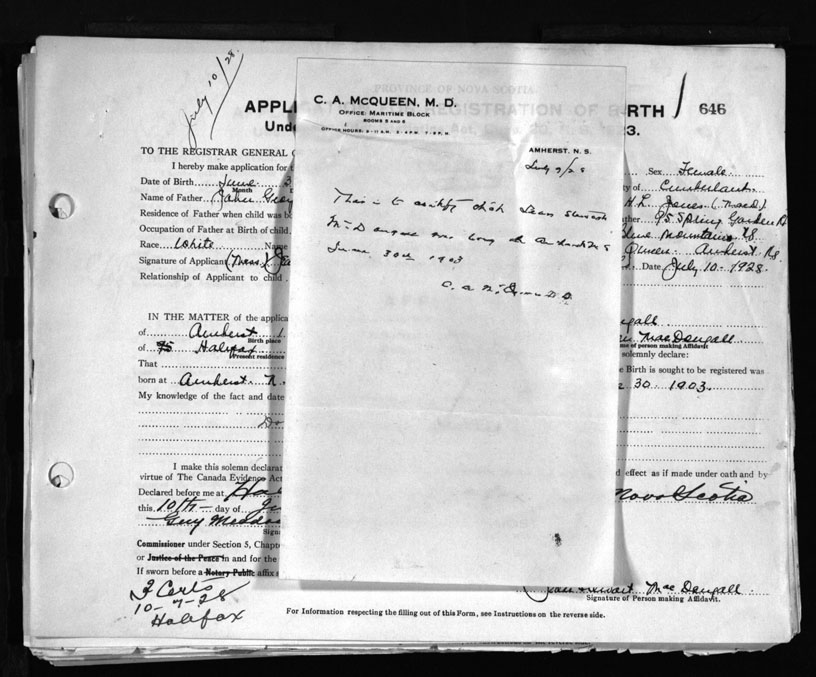 July 10/28.
PROVINCE OF NOVA SCOTIA
APPLI REGISTRATION OF BIRTH 646
Unde 1923.
C. A. MCQUEEN, M. D.
OFFICE: MARITIME BLOCK
ROOMS 5 AND 6
OFFICE HOURS: 9-11 A.M. 2-4 P.M. 7-9 P.M.
AMHERST, N. S.
July 9/28
This is to certify that Jean Stewart
McDougall was born at Amherst N S
June 30th 1903
TO THE REGISTRAR GENERAL O
I hereby make application for t Sex Female
Date of Birth June 3 ty of Cumberland
Month
Name of Father John Geor H.L. Jones (MacD.)
Residence of Father when child was b ather 95 Spring Garden Rd
Occupation of Father at Birth of child Mountain
Race White Name Queen Amherst N.S.
Signature of Applicant (Mrs.) Je Date July 10-1928.
Relationship of Applicant to child
IN THE MATTER of the applica ugall
of Amherst MacDougall
Birth place me of person making Affidavit
of 95 Halifax solemnly declare:
Present residence
That e Birth is sought to be registered was
born at Amherst N. 30 1903.
My knowledge of the fact and date
Do
I make this solemn declarat d effect as if made under oath and by
virtue of The Canada Evidence Act
Declared before me at Ha Nova Scotia
this 10th day of Ju
Guy
Sign
Commissioner under Section 5, Chapt
or Justice of the Peace in and for the
If sworn before a Notary Public affix
Jean Stewart MacDougall
Signature of Person making Affidavit.
2 Certs
10-7-28
Halifax
For Information respecting the filling out of this Form, see Instructions on the reverse side.